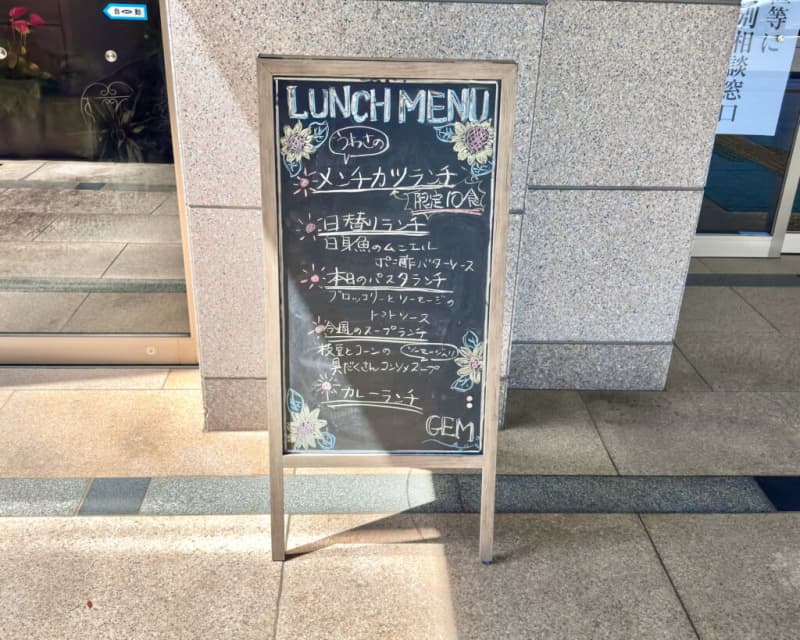 自動
等に
別相談窓口
LUNCH MENU
うわさの
メンチカツランチ
限定10食
日替りランチ
白身魚のムニエル
ポン酢バターソース
本日のパスタランチ
ブロッコリーとソーセージの
トマトソース
今週のスープランチ
枝豆とコーンの ソーセージ入り
具だくさんコンソメスープ
カレーランチ
GEM